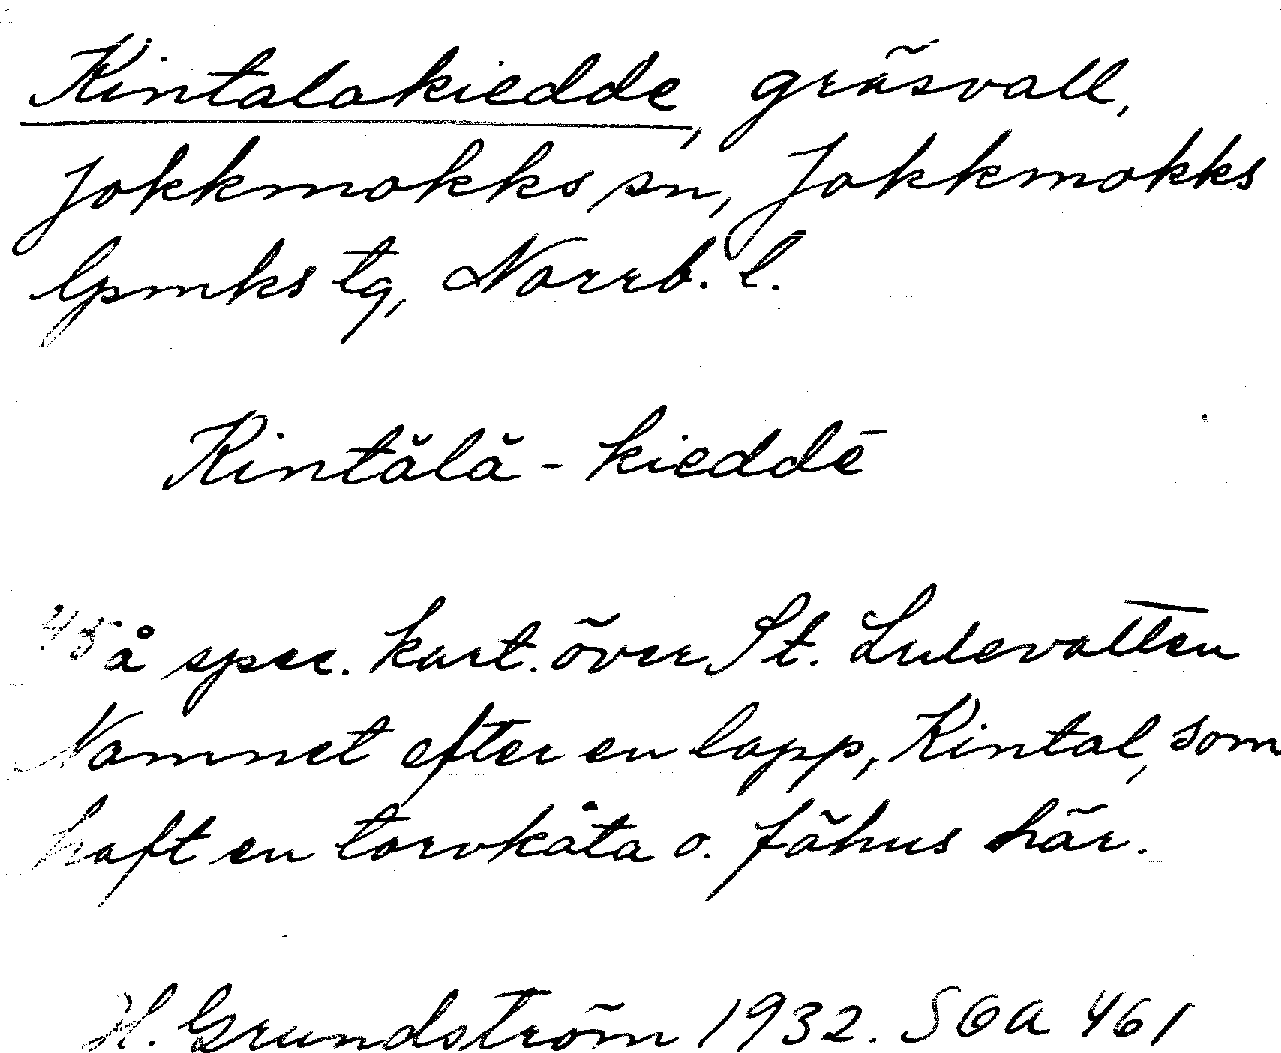 Kintalakiedde, gräsvall,
Jokkmokks sn, Jokkmokks
lpmks tg, Norrb. l.
Kintǎlǎ - kieddē
45 å spec. kart. över St. Lulevatten
Namnet efter en lapp, Kintal, som
haft en torvkåta o. fähus här.
H. Grundström 1932. SOA 461